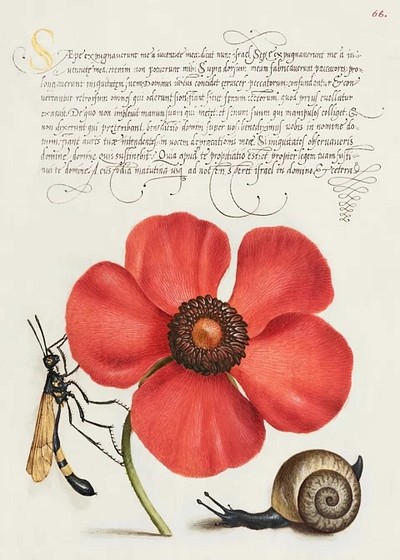 66.
Sæpe expugnauerunt me à iuuentute mea dicat nunc Israel. Sepe expugnauerunt me à iu=
uentute mea, etenim non potuerunt mihi. Supra dorsum meum fabricauerunt peccatores, pro=
longauerunt iniquitatem suam. Dominus iustus concidet ceruices peccatorum, confundantur & con=
uertantur retrorsum omnes qui oderunt sion, fiant sicut fenum tectorum, quod prius euellatur
exaruit. De quo non impleuit manum suam qui metit, et sinum suum qui manipulos colligit. &
non dixerunt qui preteribant, benedictio domini super uos, benediximus uobis in nomine do=
mini, fiant aures tuæ intendentes in uocem deprecationis meæ. Si iniquitates obseruaueris
domine, domine quis sustinebit. Quia apud te propitiatio est et propter legem tuam susti=
nui te domine. A custodia matutina usq ad noctem speret israel in domino, & cetera